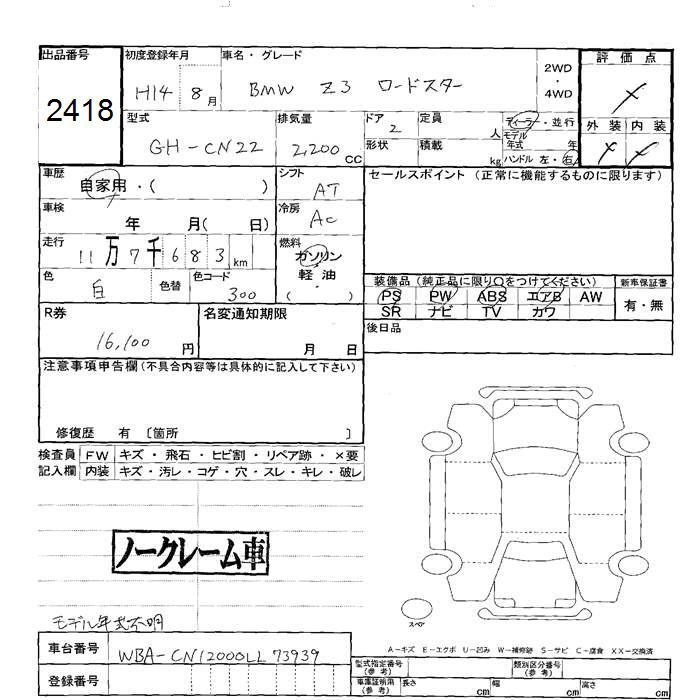 出品番号
2418
初度登録年月
H14 8月
車名・グレード
BMW Z3 ロードスター
2WD
・
4WD
評価点
外装 内装
型式
GH-CN22
排気量
2,200 CC
ドア
2
定員
人
形状
積載
kg
ディーラー・並行
モデル年式 年
ハンドル 左・右
車歴
自家用・( )
シフト
AT
車検
年 月( 日)
冷房
AC
走行
11万7千683km
燃料
ガソリン
軽油
( )
色
白
色替
色コード
300
セールスポイント(正常に機能するものに限ります)
装備品(純正品に限り○をつけてください)
PS PW ABS エアB AW
SR ナビ TV カワ
新車保証書
有・無
後日品
R券
16,100 円
名変通知期限
月 日
注意事項申告欄(不具合内容等は具体的に記入して下さい)
修復歴 有 〔箇所 〕
検査員記入欄
FW キズ・飛石・ヒビ割・リペア跡・×要
内装 キズ・汚レ・コゲ・穴・スレ・キレ・破レ
ノークレーム車
モデル年式不明
スペア
A-キズ E-エクボ U-凹み W-補修跡 S-サビ C-腐食 XX-交換済
車台番号
WBA-CN12000LL73939
登録番号
型式指定番号(参考)
類別区分番号(参考)
車庫証明用(参考)
長さ cm
幅 cm
高さ cm